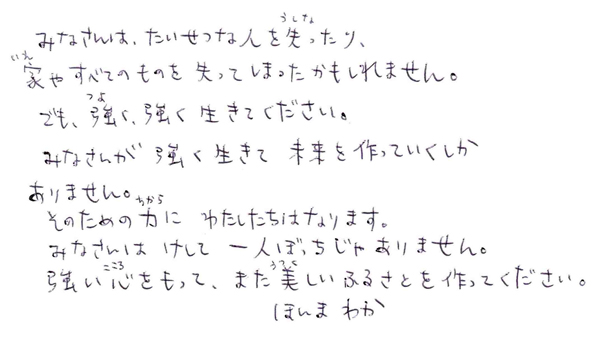 みなさんは、たいせつな人を失ったり、
家やすべてのものを失ってしまったかもしれません。
でも、強く、強く生きてください。
みなさんが強く生きて未来を作っていくしか
ありません。
そのための力にわたしたちはなります。
みなさんはけして一人ぼっちじゃありません。
強い心をもって、また美しいふるさとを作ってください。
ほんまわか